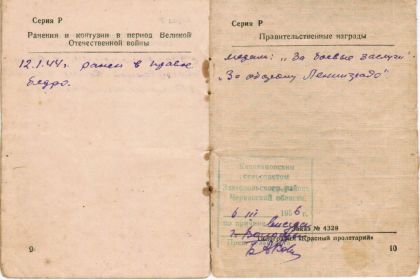 Серия Р
Ранения и контузии в период Великой
Отечественной войны
12.1.44г. ранен в правое
бедро.
9
Серия Р
Правительственные награды
медаль: „За боевые заслуги"
„За оборону Ленинграда"
сельсоветом
района
области
6 III 1956 г.
по причине
Заказ № 4326
«Красный пролетарий»
10